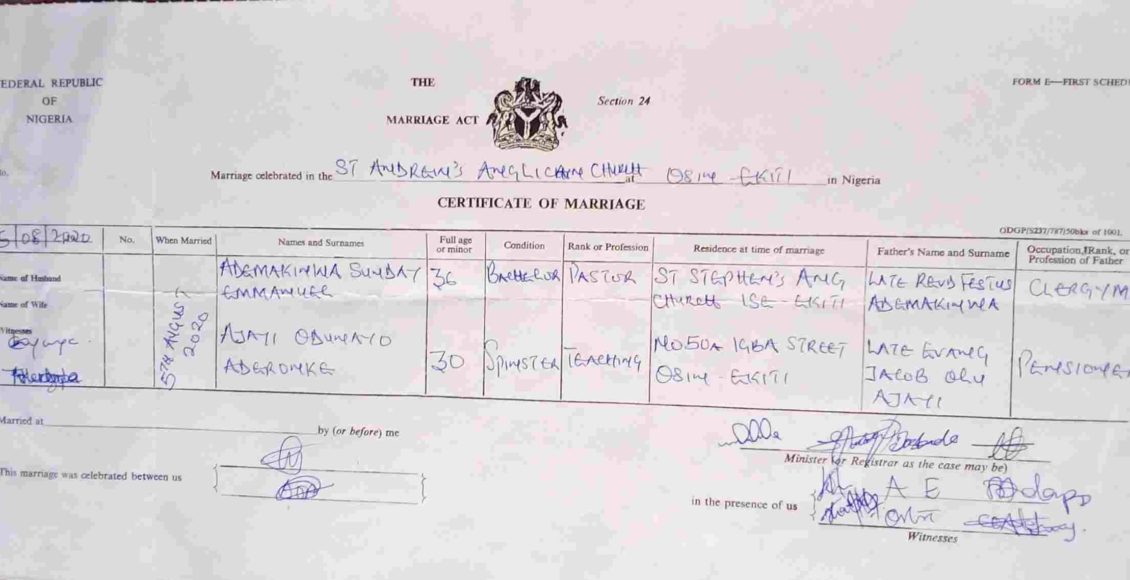 FEDERAL REPUBLIC
OF
NIGERIA
THE
MARRIAGE ACT
Section 24
FORM E—FIRST SCHEDU
Marriage celebrated in the ST ANDREW'S ANGLICAN CHURCH at OSIN-EKITI in Nigeria
CERTIFICATE OF MARRIAGE
5/08/2020
No.
When Married
Names and Surnames
Full age or minor
Condition
Rank or Profession
Residence at time of marriage
Father's Name and Surname
Occupation, Rank, or Profession of Father
Name of Husband
5TH AUGUST 2020
ADEMAKINWA SUNDAY
EMMANUEL
36
BACHELOR
PASTOR
ST STEPHEN'S ANG
CHURCH ISE-EKITI
LATE REVD FESTUS
ADEMAKINWA
CLERGYM
Name of Wife
Witnesses
AJAYI ODUNAYO
ADERONKE
30
SPINSTER
TEACHING
NO 50A IGBA STREET
OSIN-EKITI
LATE EVANG
JACOB OLU
AJAYI
PENSIONER
Married at
by (or before) me
Minister (or Registrar as the case may be)
This marriage was celebrated between us
in the presence of us
A E
Witnesses